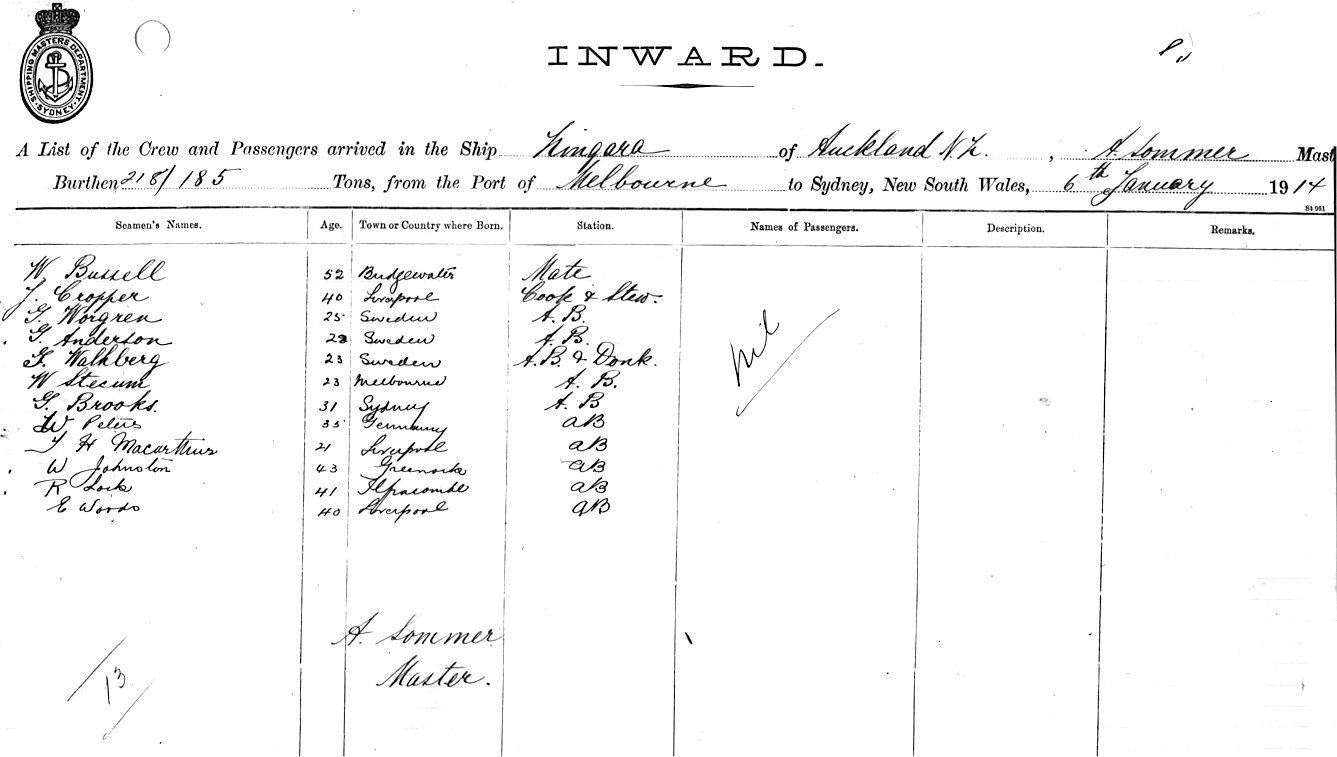 SHIPPING MASTERS DEPARTMENT
SYDNEY
INWARD.
A List of the Crew and Passengers arrived in the Ship Ningara of Auckland N.Z. , A Sommer Mast
Burthen 218/185 Tons, from the Port of Melbourne to Sydney, New South Wales, 6th January 1914
S4 951
Seamen's Names. Age. Town or Country where Born. Station. Names of Passengers. Description. Remarks.
W Bussell 52 Bridgewater Mate
J. Cropper 40 Liverpool Cook & Stew.
G. Worgren 25 Sweden A.B.
G. Anderson 22 Sweden A.B.
F. Wahlberg 23 Sweden A.B. & Donk.
nil
W Stecum 23 Melbourne A.B.
G. Brooks. 31 Sydney A.B
W Peters 35 Germany AB
J H Macarthur 21 Liverpool AB
W Johnston 43 Greenock AB
R Lock 41 Ilfracombe AB
E Woods 40 Liverpool AB
A. Sommer
Master.
13